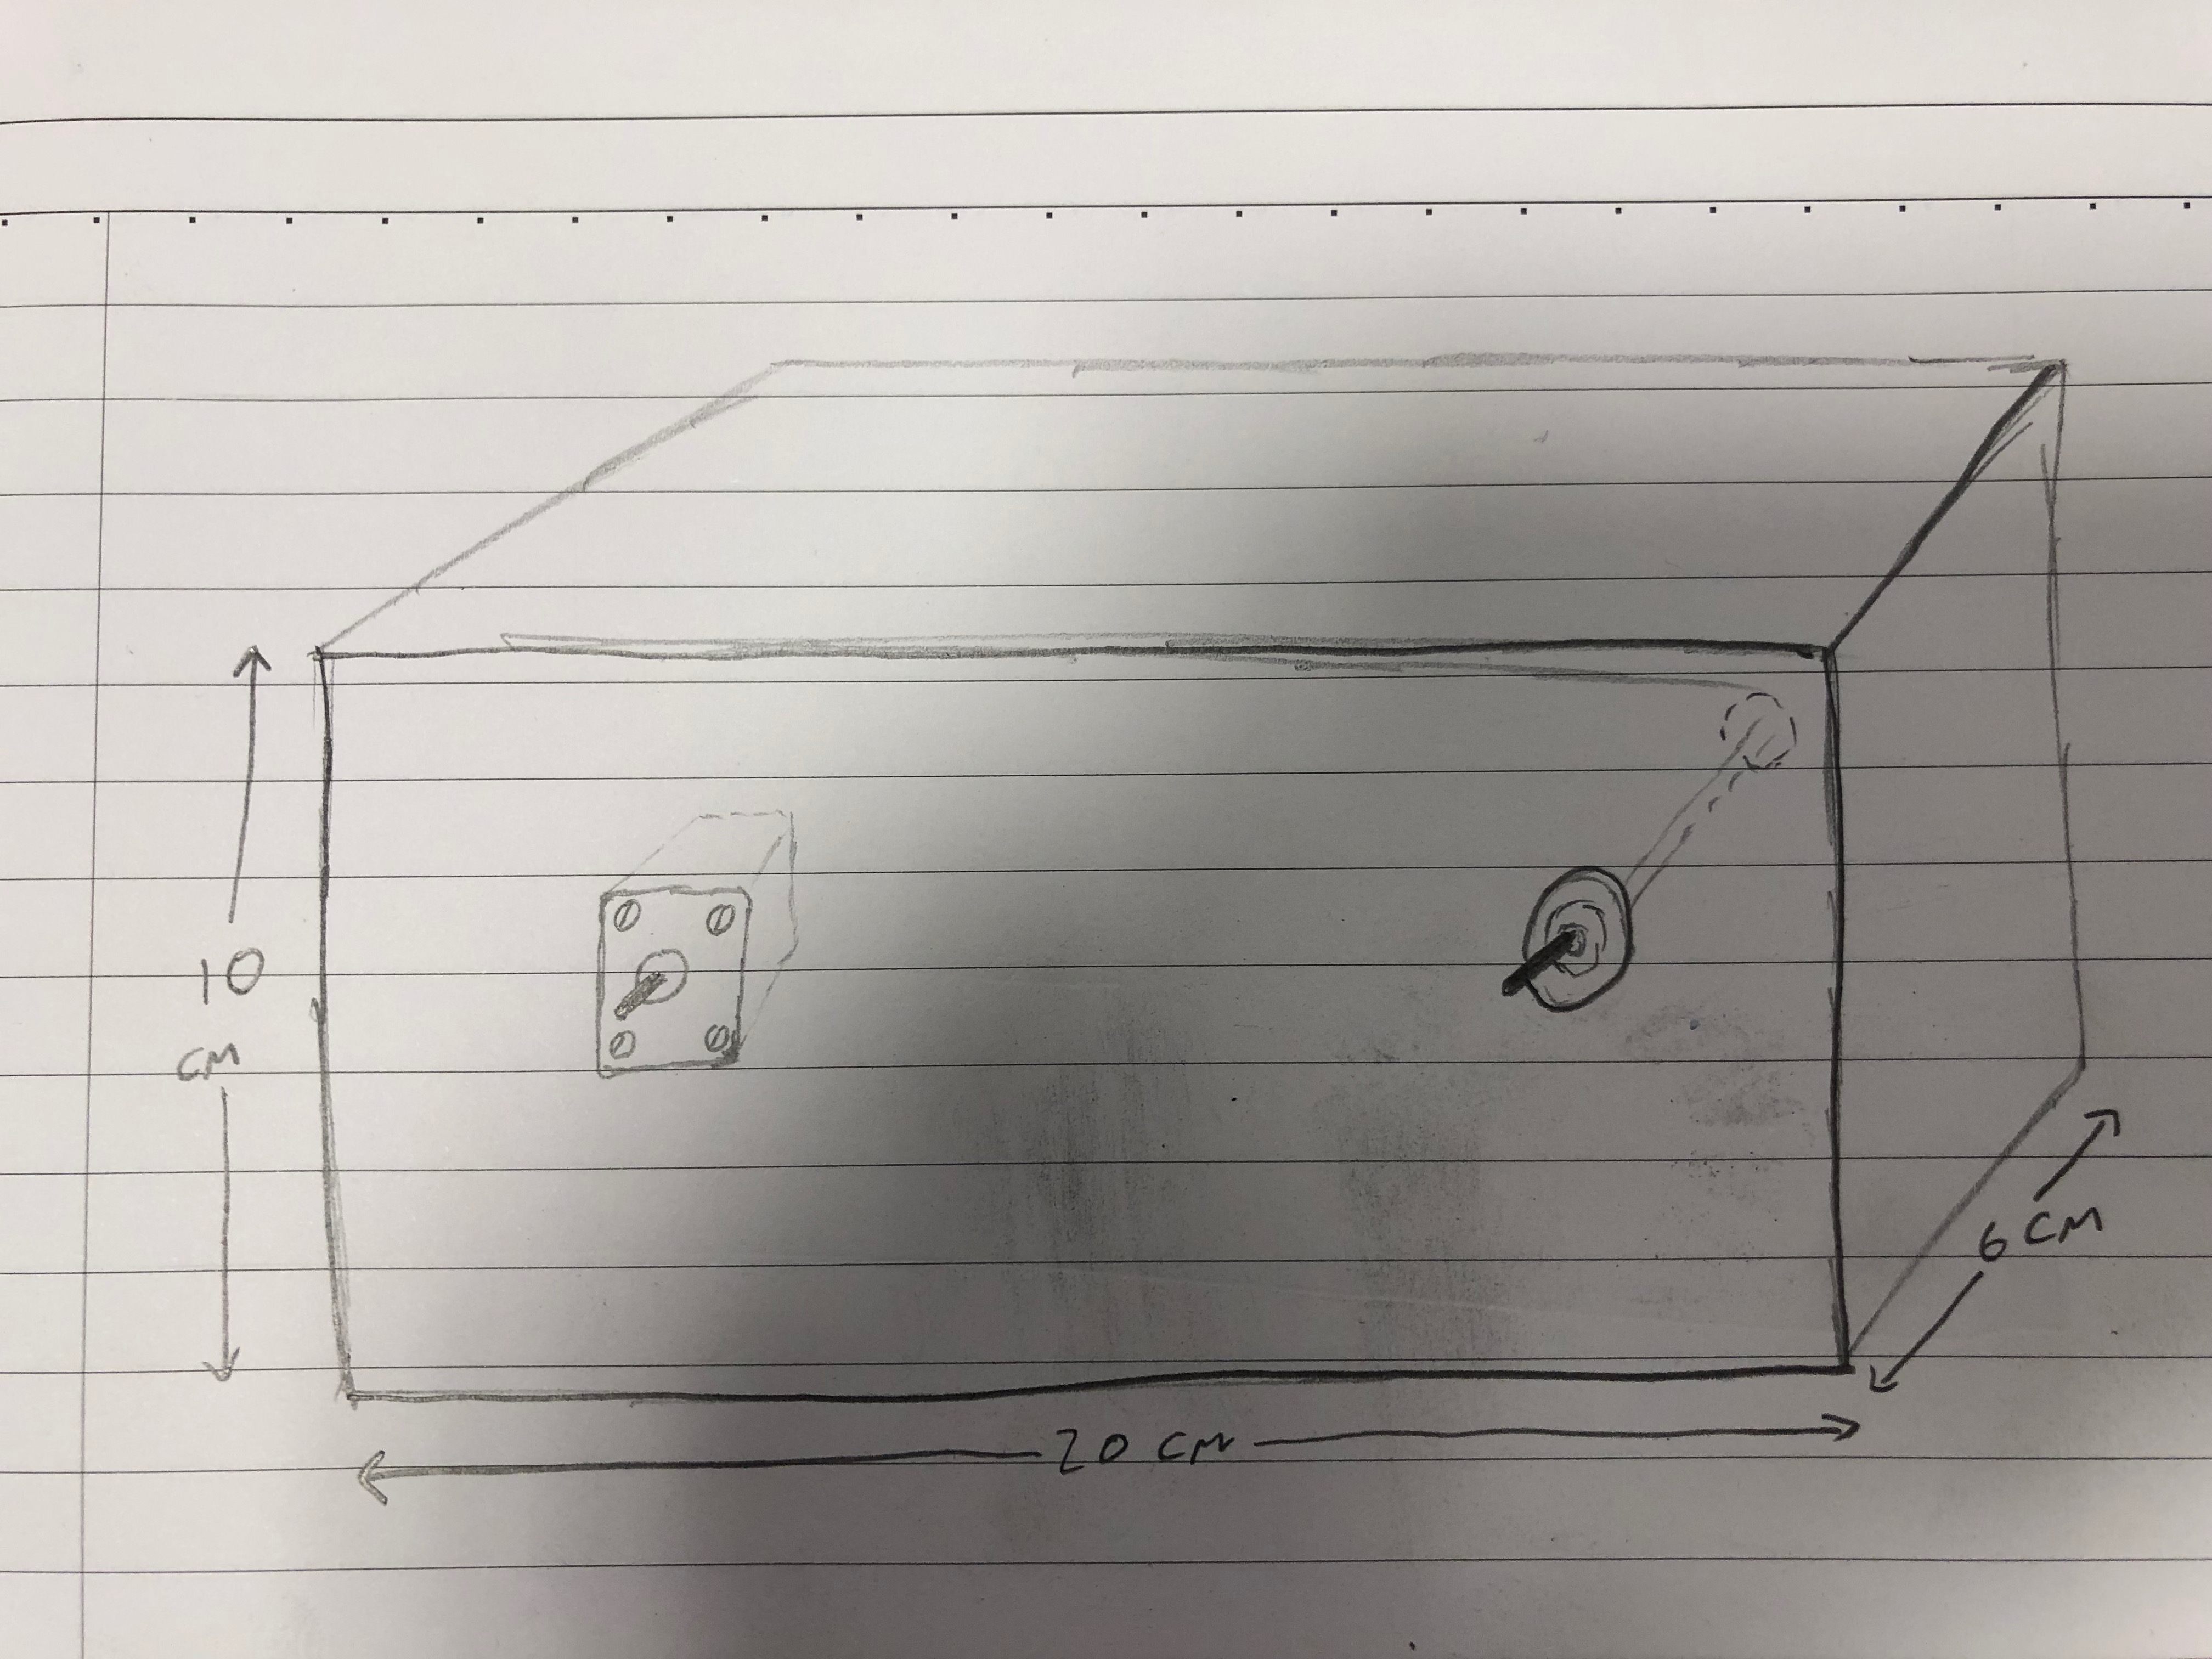 10
CM
6 CM
20 CM